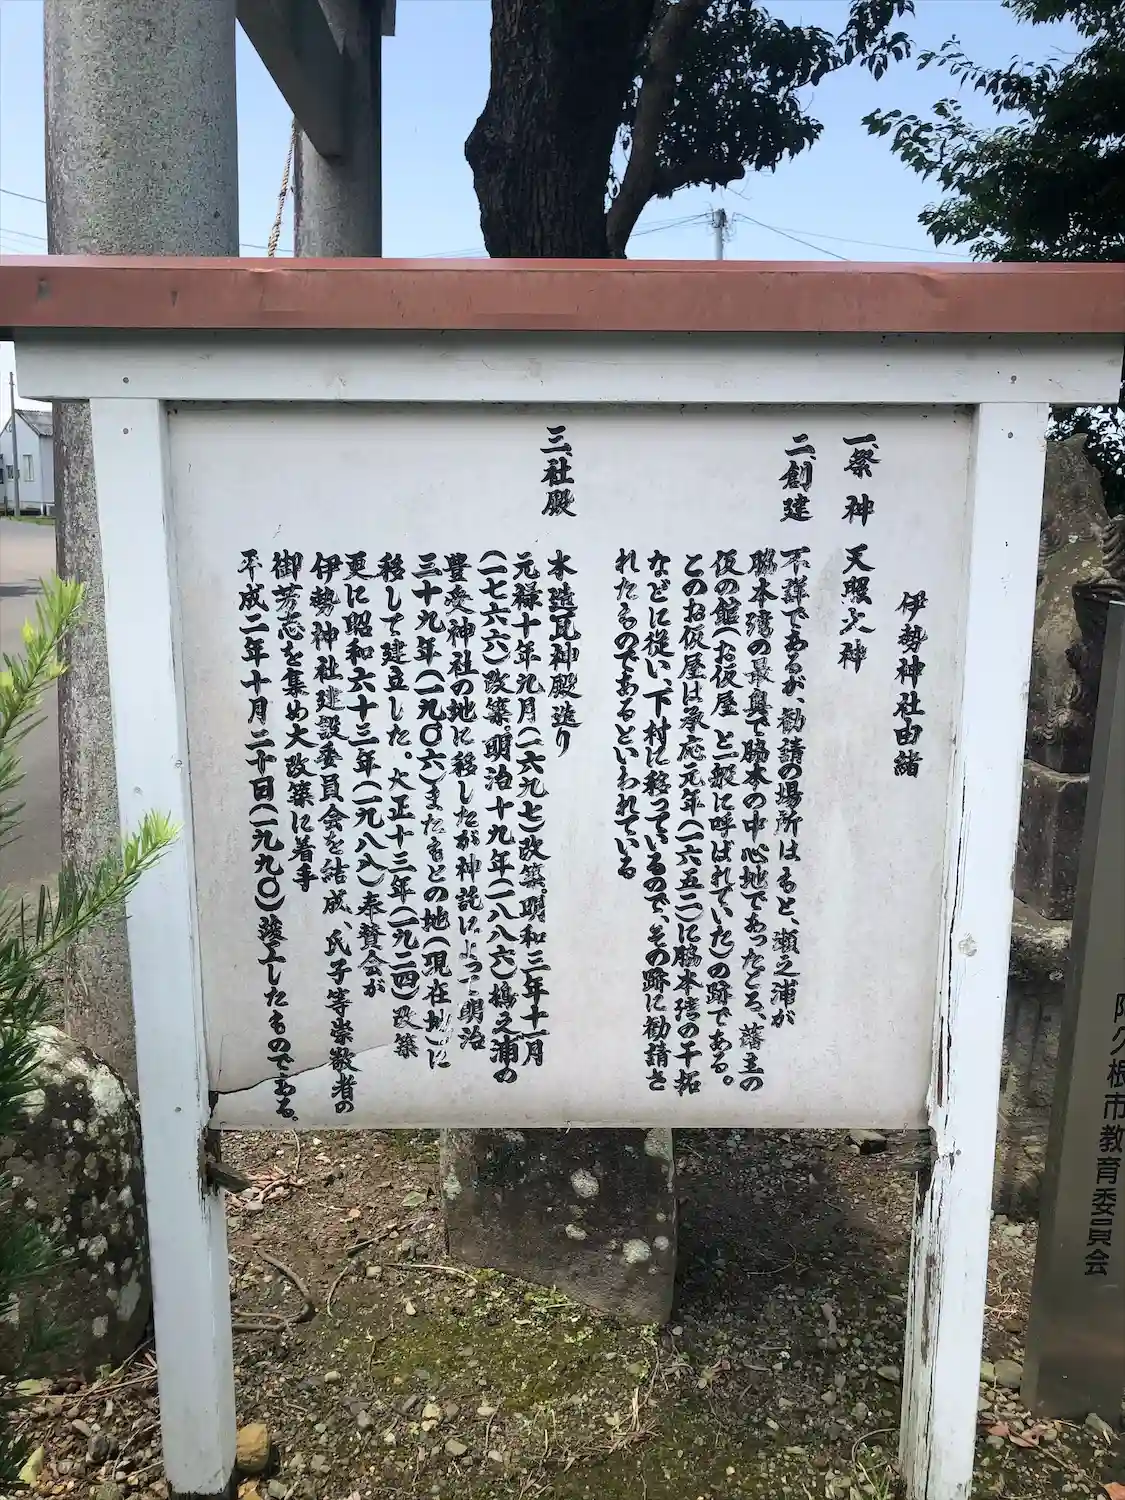 伊勢神社由緒
一、祭神 天照大神
二、創建 不詳であるが、勧請の場所はもと、瀬之浦が
脇本湾の最奥で脇本の中心地であったころ、藩主の
仮の館(お仮屋と一般に呼ばれていた)の跡である。
このお仮屋は承応元年(一六五二)に脇本湾の干拓
などに従い、下村に移っているので、その跡に勧請さ
れたものであるといわれている
三、社殿 木造瓦神殿造り
元禄十年九月(一六九七)改築。明和三年十一月
(一七六六)改築。明治十九年(一八八六)楊之浦の
豊受神社の地に移したが神託によって明治
三十九年(一九〇六)またもとの地(現在地)に
移して建立した。大正十三年(一九二四)改築
更に昭和六十三年(一九八八)奉賛会が
伊勢神社建設委員会を結成、氏子等崇敬者の
御芳志を集め大改築に着手
平成二年十月二十日(一九九〇)竣工したものである。
阿久根市教育委員会